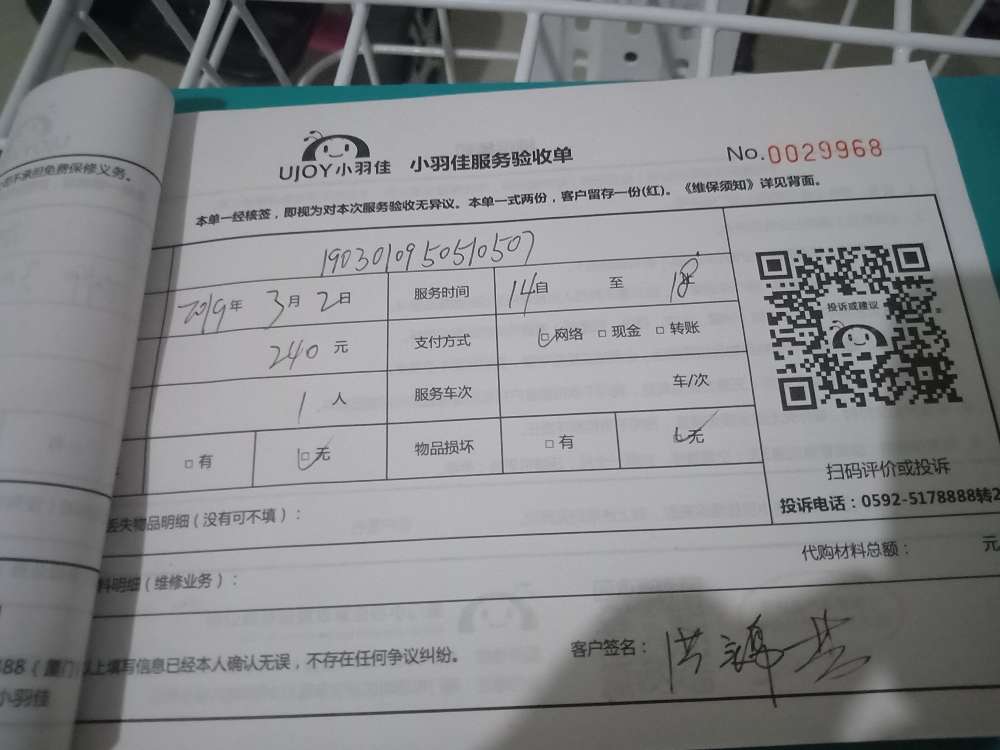 不承担免费保修义务。
UJOY小羽佳 小羽佳服务验收单 No.0029968
本单一经核签，即视为对本次服务验收无异议。本单一式两份，客户留存一份(红)。《维保须知》详见背面。
190301095051050507
2019年 3月 2日 服务时间 14自 至 18
240 元 支付方式 □网络 □现金 □转账
1 人 服务车次 车/次
□有 □无 物品损坏 □有 无
投诉或建议
扫码评价或投诉
投诉电话：0592-5178888转2
丢失物品明细（没有可不填）：
代购材料总额： 元
料明细（维修业务）：
客户签名：洪
以上填写信息已经本人确认无误，不存在任何争议纠纷。
888（厦门
小羽佳